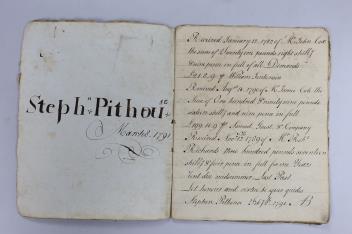 Stephn Pithouse
March 8 1791
Received January 12, 1792 of Mr John Cox
the sum of Twenty one pounds eight shillgs
& nine pence in full of all Demands
£21.8.9 William
Received Augst of Mr James Cox the
Sum of One hundred & ninety nine pounds
sixteen shills and nine pence in full
£199.16.9 Samuel & Company
Received Novr 1789 of Mr Robt
Richards nine hundred pounds seventeen
shillgs & four pence in full for one Years
Rent due midsummer Last Past
Let honour and virtue be your guides
Stephen Pithouse 1791